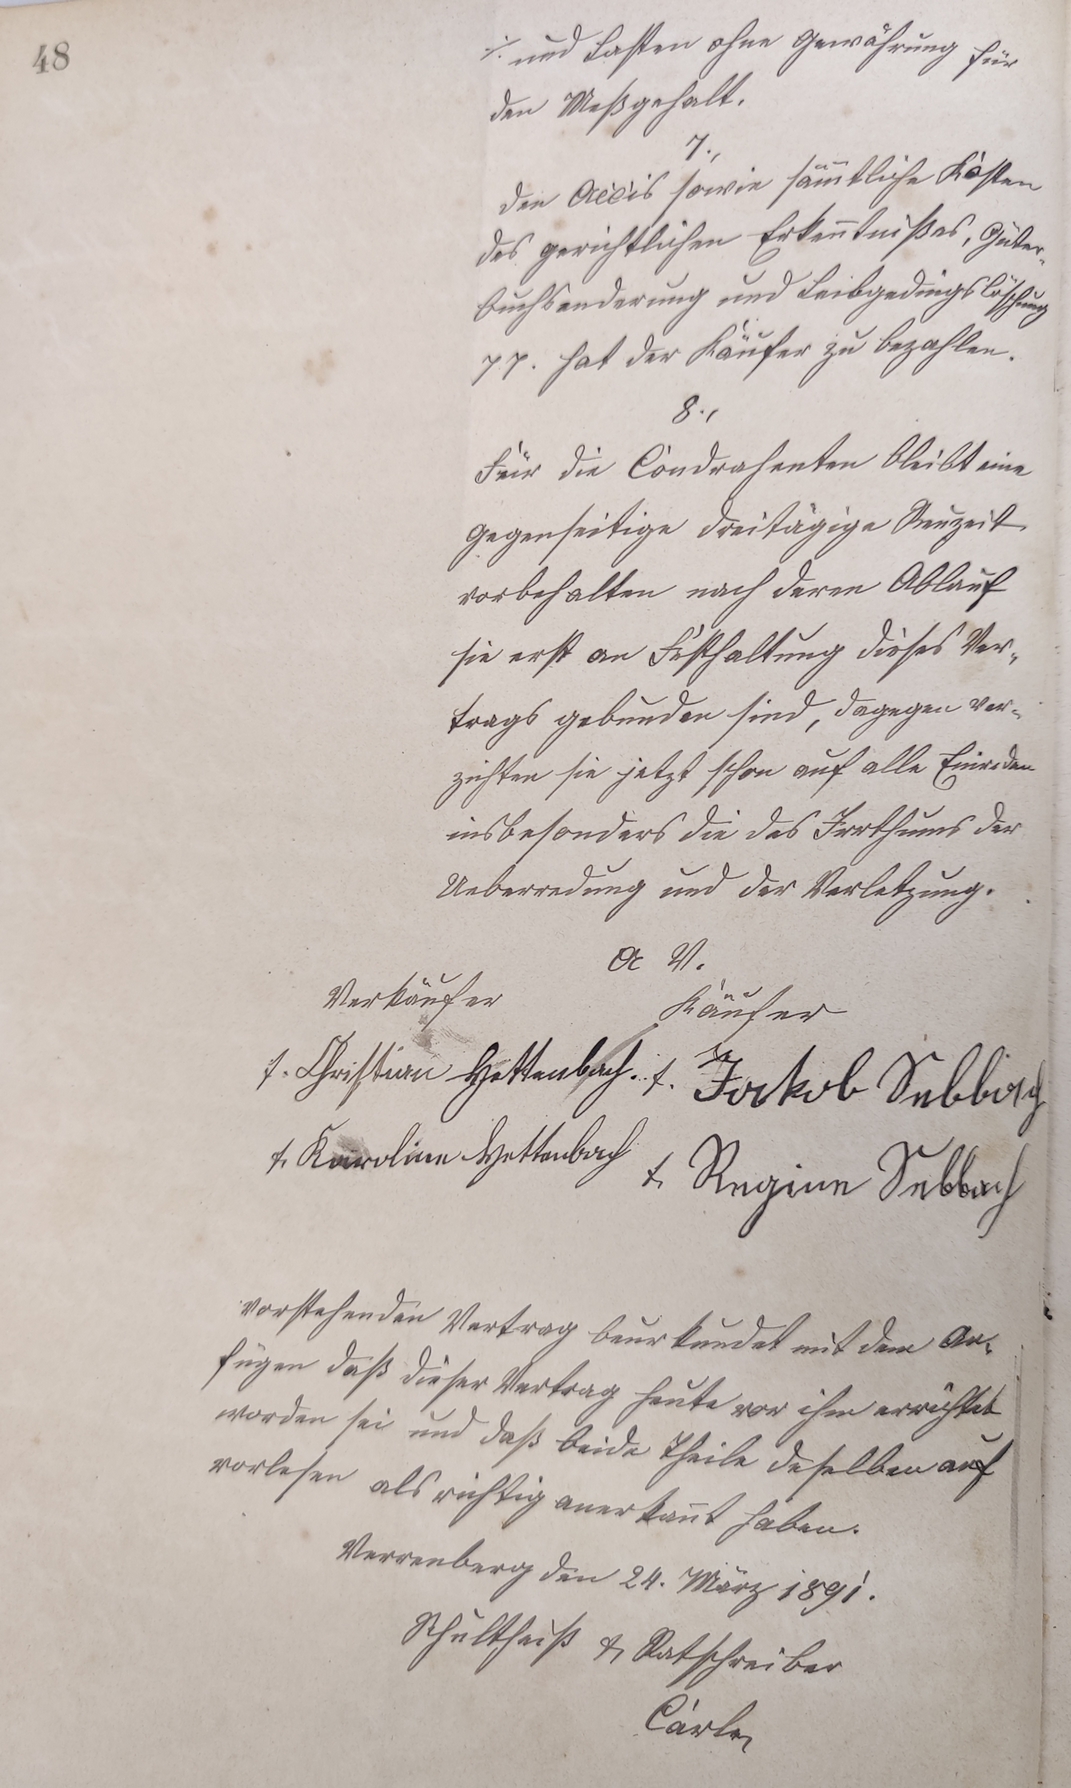 48
./. und Lasten ohne Gewährung für
den Meßgehalt.
7.,
den Accis sowie sämtliche Kosten
des gerichtlichen Erkenntnißes, Güter-
buchsenderung und Leibgedingslöschung
pp. hat der Käufer zu bezahlen.
8.,
Für die Condrahenten bleibt eine
gegenseitige dreitägige Reuzeit
vorbehalten nach deren Ablauf
sie erst an Festhaltung dieses Ver-
trags gebunden sind, dagegen ver-
zichten sie jetzt schon auf alle Einreden
insbesonders die des Irrthums der
Ueberredung und der Verletzung.
A V.
Verkäufer Käufer
t. Christian Hettenbach. t. Jakob Sebbach
t. Karoline Hettenbach t. Regine Sebbach
vorstehenden Vertrag beurkundet mit dem An-
fügen daß dieser Vertrag heute vor ihm errichtet
worden sei und daß beide Theile deselben auf
vorlesen als richtig anerkannt haben.
Verrenberg den 24. März 1891.
Schultheiß & Ratschreiber
Carle